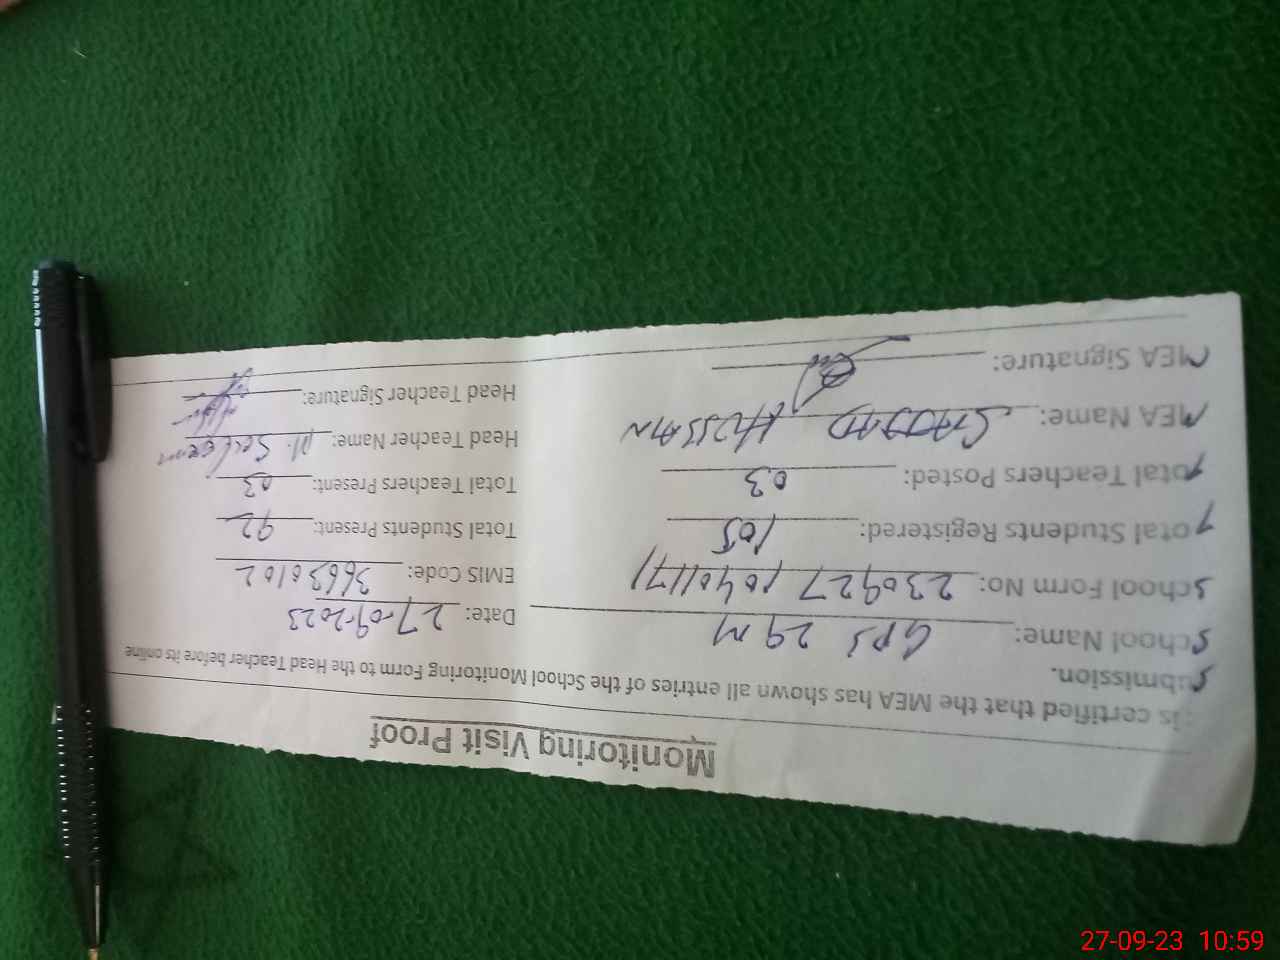 Monitoring Visit Proof
is certified that the MEA has shown all entries of the School Monitoring Form to the Head Teacher before its online
submission.
School Name: GPS 29 M Date: 27-09-2023
School Form No: 230927 EMIS Code: 36630102
Total Students Registered: 105 Total Students Present: 92
Total Teachers Posted: 03 Total Teachers Present: 03
MEA Name: SAJJAD HUSSAIN Head Teacher Name: M. Saleem
MEA Signature: Head Teacher Signature:
27-09-23 10:59